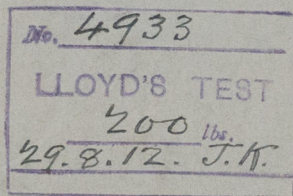 No. 4933
LLOYD'S TEST
200 lbs.
29.8.12. J.K.